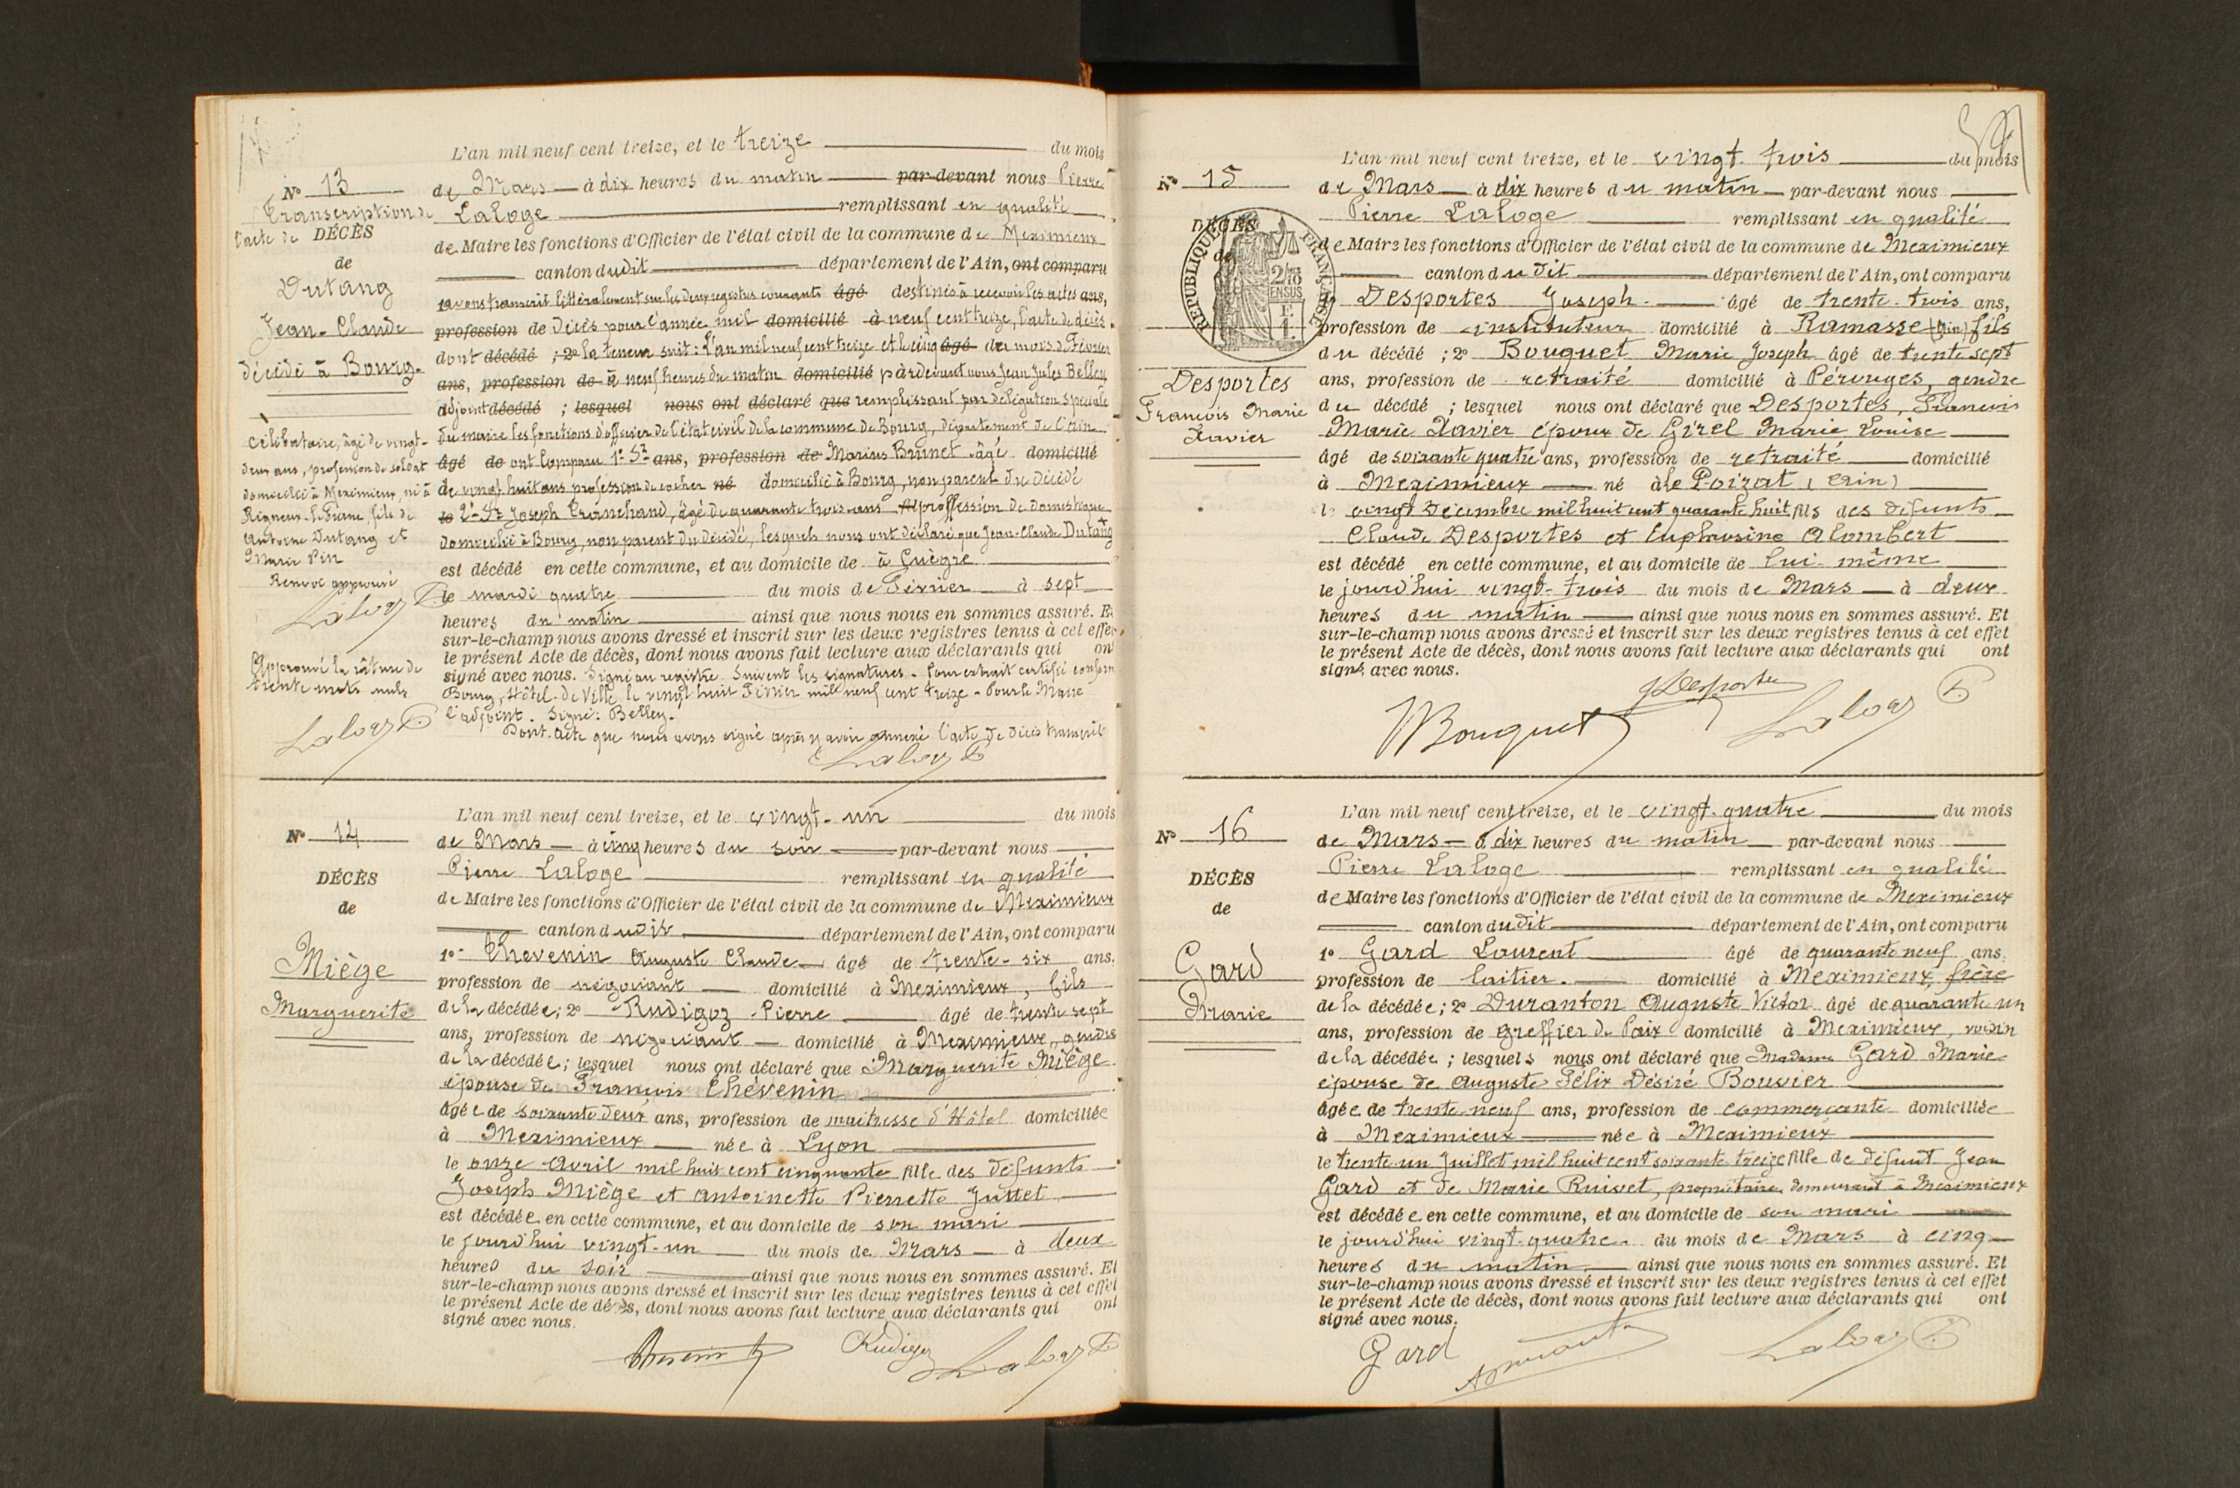 L'an mil neuf cent treize, et le treize du mois
N° 13
de Mars à dix heures du matin par-devant nous Pierre
Transcription de
Laloge remplissant en qualité
l'acte de DÉCÈS
de Maire les fonctions d'Officier de l'état civil de la commune de Meximieux
de
canton dudit département de l'Ain, ont comparu
Dutang
avons transcrit littéralement sur les deux registres courants âgé destinés à recevoir les actes ans,
Jean-Claude
profession de Décès pour l'année mil domicilié à neuf cent treize, l'acte de décès
décédé à Bourg
dont décédé ; 2° la teneur suit : L'an mil neuf cent treize et le cinq âgé du mois de Février
ans, profession de à neuf heures du matin domicilié pardevant nous Jean Jules Belley
adjoint décédé ; lesquel nous ont déclaré que remplissant par délégation spéciale
du maire les fonctions d'officier de l'état civil de la commune de Bourg, département de l'Ain
âgé de ont comparu 1° Sr ans, profession de Marius Brunet âgé domicilié
de vingt huit ans profession de cocher né domicilié à Bourg, non parent du décédé
le 2° Sr Joseph Cranchand, âgé de quarante trois ans fil proffession de domestique
domicilié à Bourg, non parent du décédé, lesquels nous ont déclaré que Jean-Claude Dutang
célibataire, âgé de vingt-
deux ans, profession de soldat
domicilié à Meximieux, né à
Rigneux-le-Franc, fils de
Antoine Dutang et
Marie Pin
Renvoi approuvé
Laloge P
est décédé en cette commune, et au domicile de
le mardi quatre du mois de Février à sept
heures du matin ainsi que nous nous en sommes assuré. Et
sur-le-champ nous avons dressé et inscrit sur les deux registres tenus à cet effet
le présent Acte de décès, dont nous avons fait lecture aux déclarants qui ont
signé avec nous. Signé au registre. Suivent les signatures. Pour extrait certifié conforme
Bourg, Hôtel-de-Ville, le vingt huit Février mil neuf cent treize. Pour le Maire
l'adjoint. Signé : Belley.
Dont acte que nous avons signé après y avoir annexé l'acte de décès transcrit
Approuvé la râture de
trente mots nuls
Laloge P
Laloge P
L'an mil neuf cent treize, et le vingt-un du mois
N° 14
de Mars à cinq heures du soir par-devant nous
Pierre Laloge remplissant en qualité
DÉCÈS
de Maire les fonctions d'Officier de l'état civil de la commune de Meximieux
de
canton dudit département de l'Ain, ont comparu
1° Thevenin Auguste Claude âgé de trente-six ans,
Miège
profession de négociant domicilié à Meximieux, fils
Marguerite
de la décédée ; 2° Rudigoz Pierre âgé de trente sept
ans, profession de négociant domicilié à Meximieux, gendre
de la décédée ; lesquel nous ont déclaré que Marguerite Miège
épouse de François Thévenin
âgée de soixante deux ans, profession de maîtresse d'Hôtel domiciliée
à Meximieux née à Lyon
le onze avril mil huit cent cinquante fille des défunts
Joseph Miège et Antoinette Pierrette Juttet
est décédée en cette commune, et au domicile de son mari
le jourd'hui vingt-un du mois de Mars à deux
heures du soir ainsi que nous nous en sommes assuré. Et
sur-le-champ nous avons dressé et inscrit sur les deux registres tenus à cet effet
le présent Acte de décès, dont nous avons fait lecture aux déclarants qui ont
signé avec nous.
Thevenin Rudigoz Laloge P
L'an mil neuf cent treize, et le vingt-trois du mois
N° 15
de Mars à dix heures du matin par-devant nous
Pierre Laloge remplissant en qualité
DÉCÈS
de
RÉPUBLIQUE FRANÇAISE
2/10 EN SUS
de Maire les fonctions d'Officier de l'état civil de la commune de Meximieux
canton du dit département de l'Ain, ont comparu
1° Desportes Joseph âgé de trente-trois ans,
profession de instituteur domicilié à Ramasse (Ain) fils
du décédé ; 2° Bouquet Marie Joseph âgé de trente sept
Desportes
François Marie
Xavier
ans, profession de retraité domicilié à Pérouges, gendre
du décédé ; lesquel nous ont déclaré que Desportes, François
Marie Xavier époux de Girel Marie Louise
âgé de soixante quatre ans, profession de retraité domicilié
à Meximieux né à le Poizat (Ain)
le vingt Décembre mil huit cent quarante huit fils des défunts
Claude Desportes et Euphrosine Alombert
est décédé en cette commune, et au domicile de lui-même
le jourd'hui vingt-trois du mois de Mars à deux
heures du matin ainsi que nous nous en sommes assuré. Et
sur-le-champ nous avons dressé et inscrit sur les deux registres tenus à cet effet
le présent Acte de décès, dont nous avons fait lecture aux déclarants qui ont
signé avec nous.
J Desportes
Bouquet Laloge P
L'an mil neuf cent treize, et le vingt-quatre du mois
N° 16
de Mars à dix heures du matin par-devant nous
Pierre Laloge remplissant en qualité
DÉCÈS
de Maire les fonctions d'Officier de l'état civil de la commune de Meximieux
de
canton dudit département de l'Ain, ont comparu
1° Gard Laurent âgé de quarante neuf ans,
Gard
profession de laitier domicilié à Meximieux, frère
Marie
de la décédée ; 2° Duranton Auguste Victor âgé de quarante un
ans, profession de greffier de Paix domicilié à Meximieux, voisin
de la décédée ; lesquels nous ont déclaré que Madame Gard Marie
épouse de Auguste Félix Désiré Bouvier
âgée de trente neuf ans, profession de commerçante domiciliée
à Meximieux née à Meximieux
le trente un Juillet mil huit cent soixante treize fille de défunt Jean
Gard et de Marie Ruivet, propriétaire demeurant à Meximieux
est décédée en cette commune, et au domicile de son mari
le jourd'hui vingt-quatre du mois de Mars à cinq
heures du matin ainsi que nous nous en sommes assuré. Et
sur-le-champ nous avons dressé et inscrit sur les deux registres tenus à cet effet
le présent Acte de décès, dont nous avons fait lecture aux déclarants qui ont
signé avec nous.
Gard Laloge P